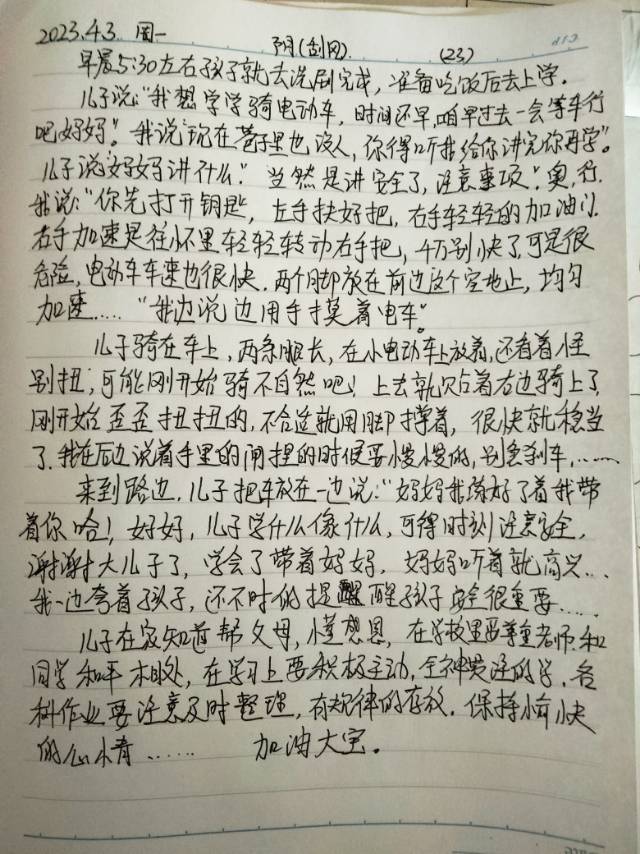 2023.4.3 周一 阴(刮风) (23)
早晨5:30左右孩子就去洗刷完成，准备吃饭后去上学。
儿子说："我想学学骑电动车，时间还早，咱早过去一会等车行
吧妈妈"。我说"现在巷子里也没人，你得听我给你讲完你再学"。
儿子说"妈妈讲什么"当然是讲安全了，注意事项"。奥，行.
我说："你先打开钥匙，左手扶好把，右手轻轻的加油门.
右手加速是往怀里轻轻转动右手把，千万别快了可是很
危险，电动车车速也很快.两个脚放在前边这个空地上，均匀
加速……"我边说边用手摸着电车"。
儿子骑在车上，两条腿长，在小电动车上放着，还看着怪
别扭，可能刚开始骑不自然吧！上去就贴着右边骑上了
刚开始歪歪扭扭的，不合适就用脚撑着，很快就稳当
了.我在后边说着手里的闸捏的时候要慢慢的，别急刹车，……
来到路边，儿子把车放在一边说："妈妈我练好了着我带
着你哈！好好，儿子学什么像什么，可得时刻注意安全，
谢谢大儿子了，学会了带着妈妈，妈妈听着就高兴…
我一边夸着孩子，还不时的提醒孩子安全很重要……
儿子在家知道帮父母，懂感恩，在学校里要尊重老师和
同学和平相处，在学习上要积极主动，全神贯注的学.各
科作业要注意及时整理，有规律的存放.保持愉快
的心情…… 加油大宝。